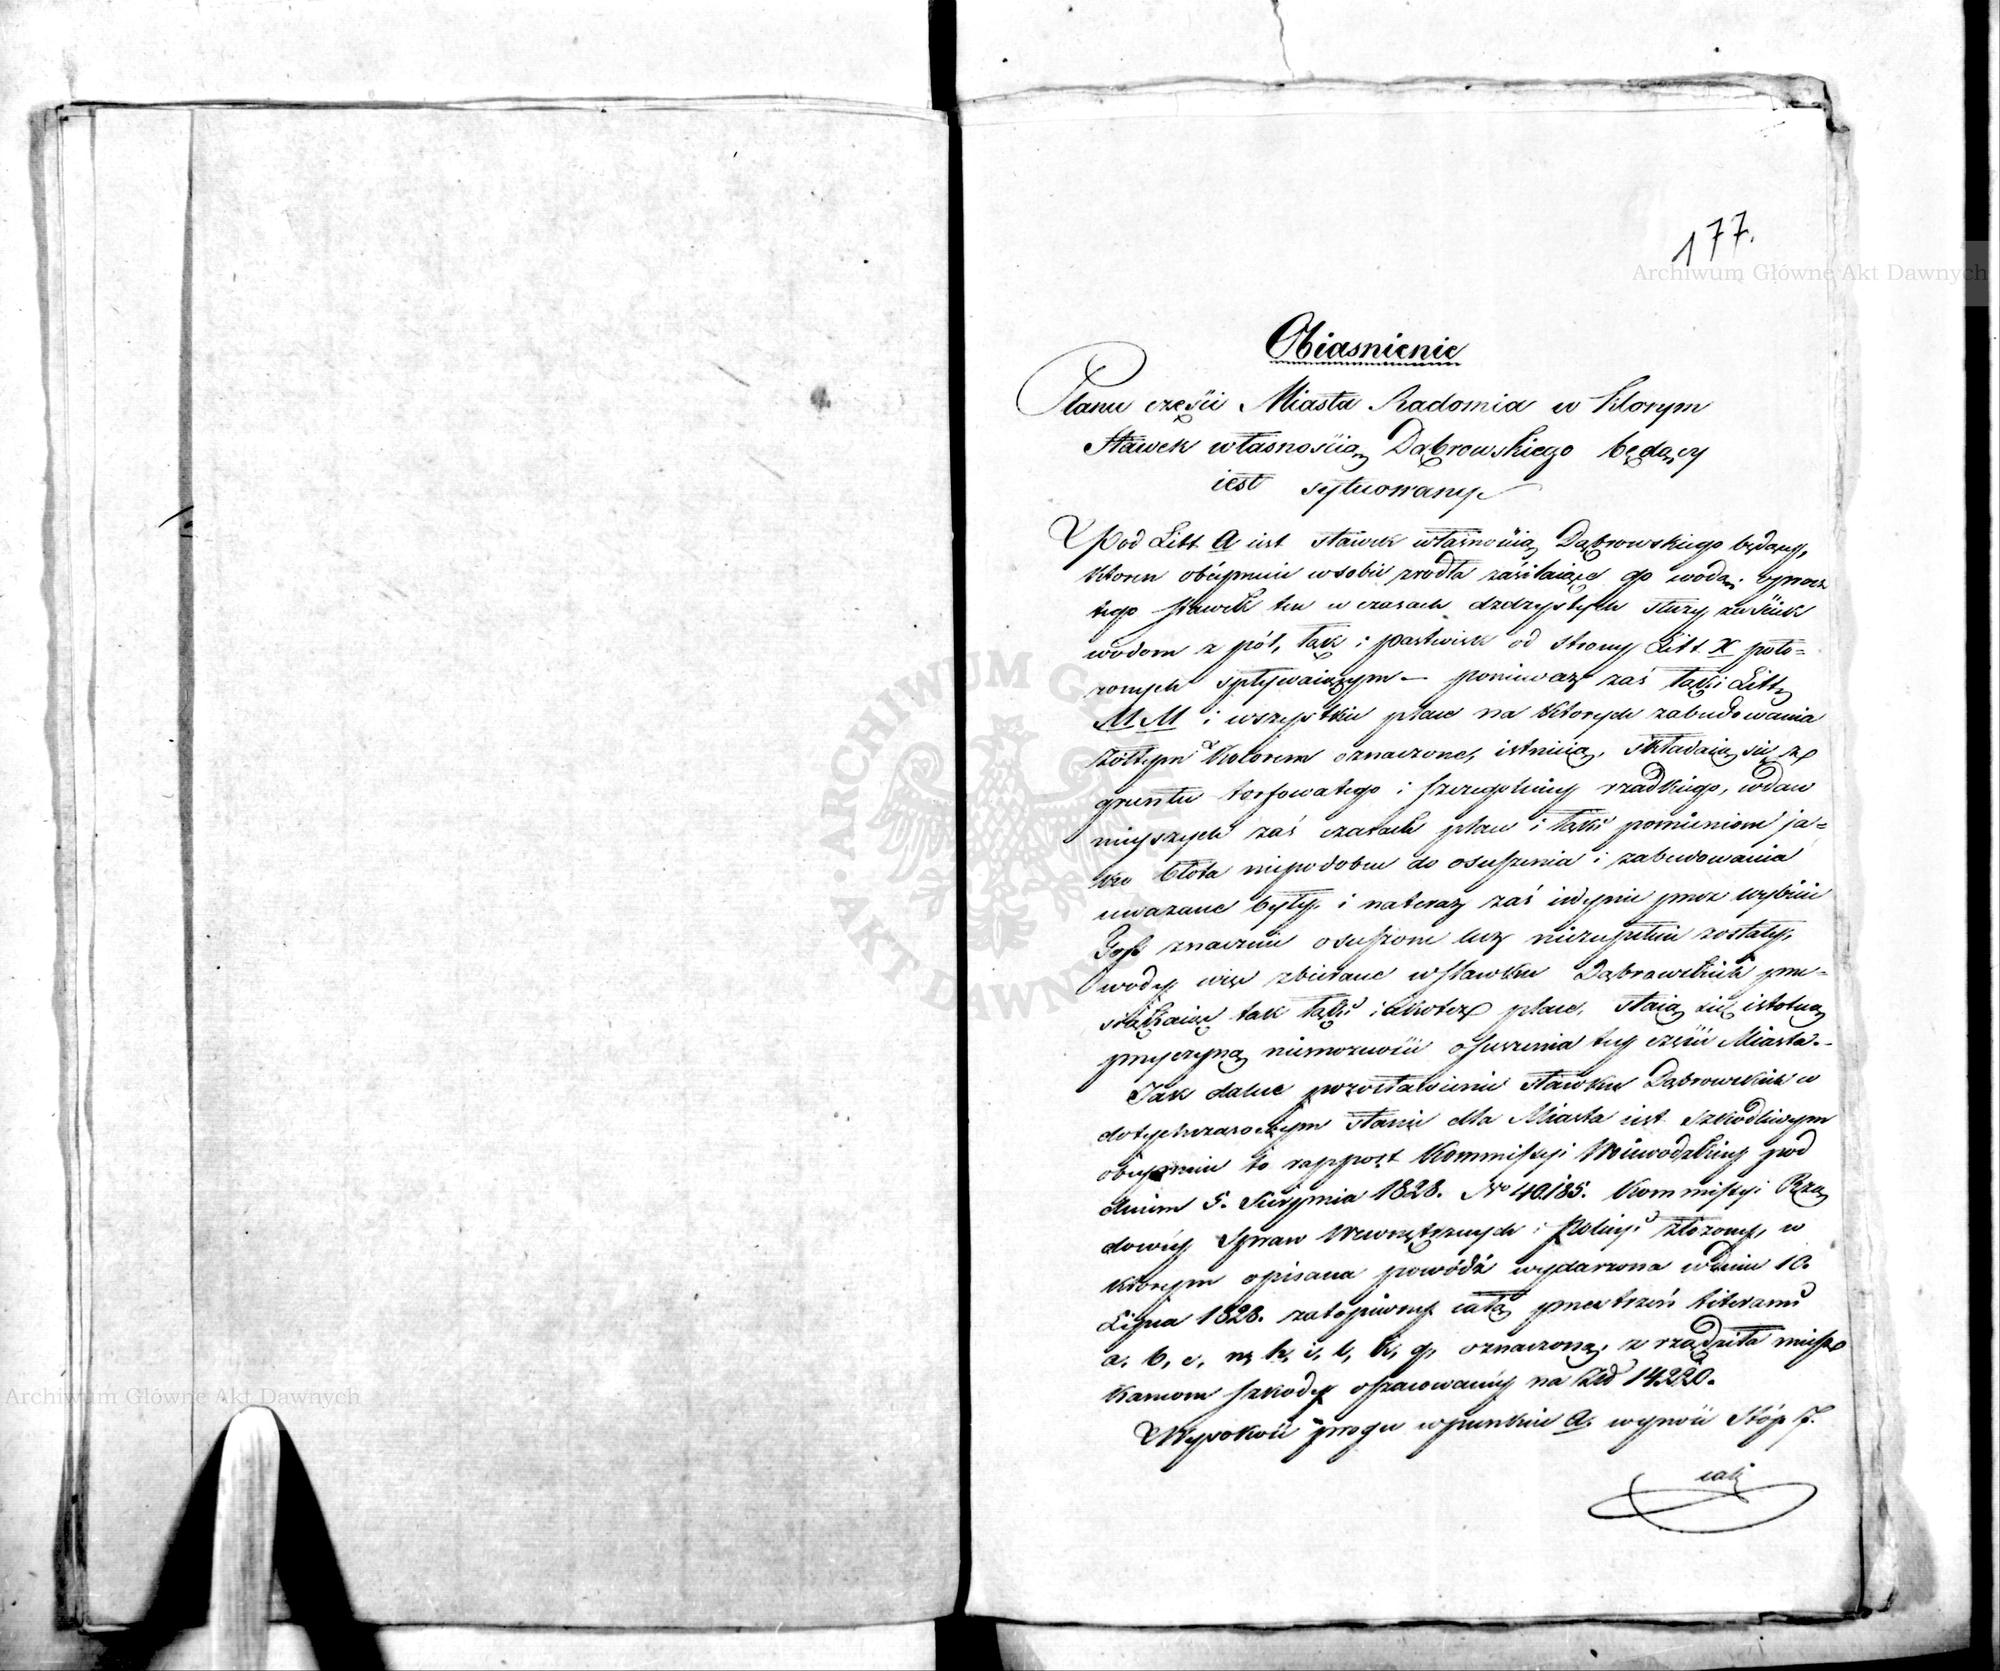 177.
Obiasnienie
Planu części Miasta Radomia w ktorym
Stawek własnością Dąbrowskiego będący
iest sytuowany
Pod Litt. A iest stawek własnością Dąbrowskiego będący,
ktoren obeymuie w sobie zrodła zasilaiące go wodą; oprocz
tego stawek ten w czasach dzdzystych słuzy za sciek
wodom z pól, łąk i pastwisk od strony Litt. X poło-
zonych spływaiącym — poniewaz zaś łąki Litt.
M M i wszystkie place na ktorych zabudowania
żółtym kolorem oznaczone, istnieią, składaią się z
gruntu torfowatego i szczegolniey rzadkiego, w daw
nieyszych zaś czasach place i łąki pomienione ja-
ko błota niepodobne do osuszenia i zabudowania
uwazane były, i nateraz zaś iedynie przez wybicie
znacznie osuszone lecz niezupełnie zostały,
wody więc zbierane w stawku Dąbrowskiego prze-
siąkaiąc tak łąki iakotez place, staią się istotną
przyczyną niemozności osuszenia tey części Miasta.
Jak dalece pozostawienie stawku Dąbrowskiego w
dotychczasowym stanie dla Miasta iest szkodliwym
obeymuie to rapport Kommissyi Woiewodzkiey pod
dniem 5. Sierpnia 1828. No 40185. Kommissyi Rzą
dowey Spraw Wewnętrznych i Policyi złozony, w
ktorym opisana powódź wydarzona w dniu 10.
Lipca 1828. zatopiwszy całą przestrzeń literami
a, b, c, n, h, i, l, k, g, oznaczoną, zrządziła miesz
kancom szkodę oszacowaney na Złp 14220.
Wysokość progu w punkcie a. wynosi Stóp 7.
cali
Archiwum Główne Akt Dawnych
Archiwum Główne Akt Dawnych